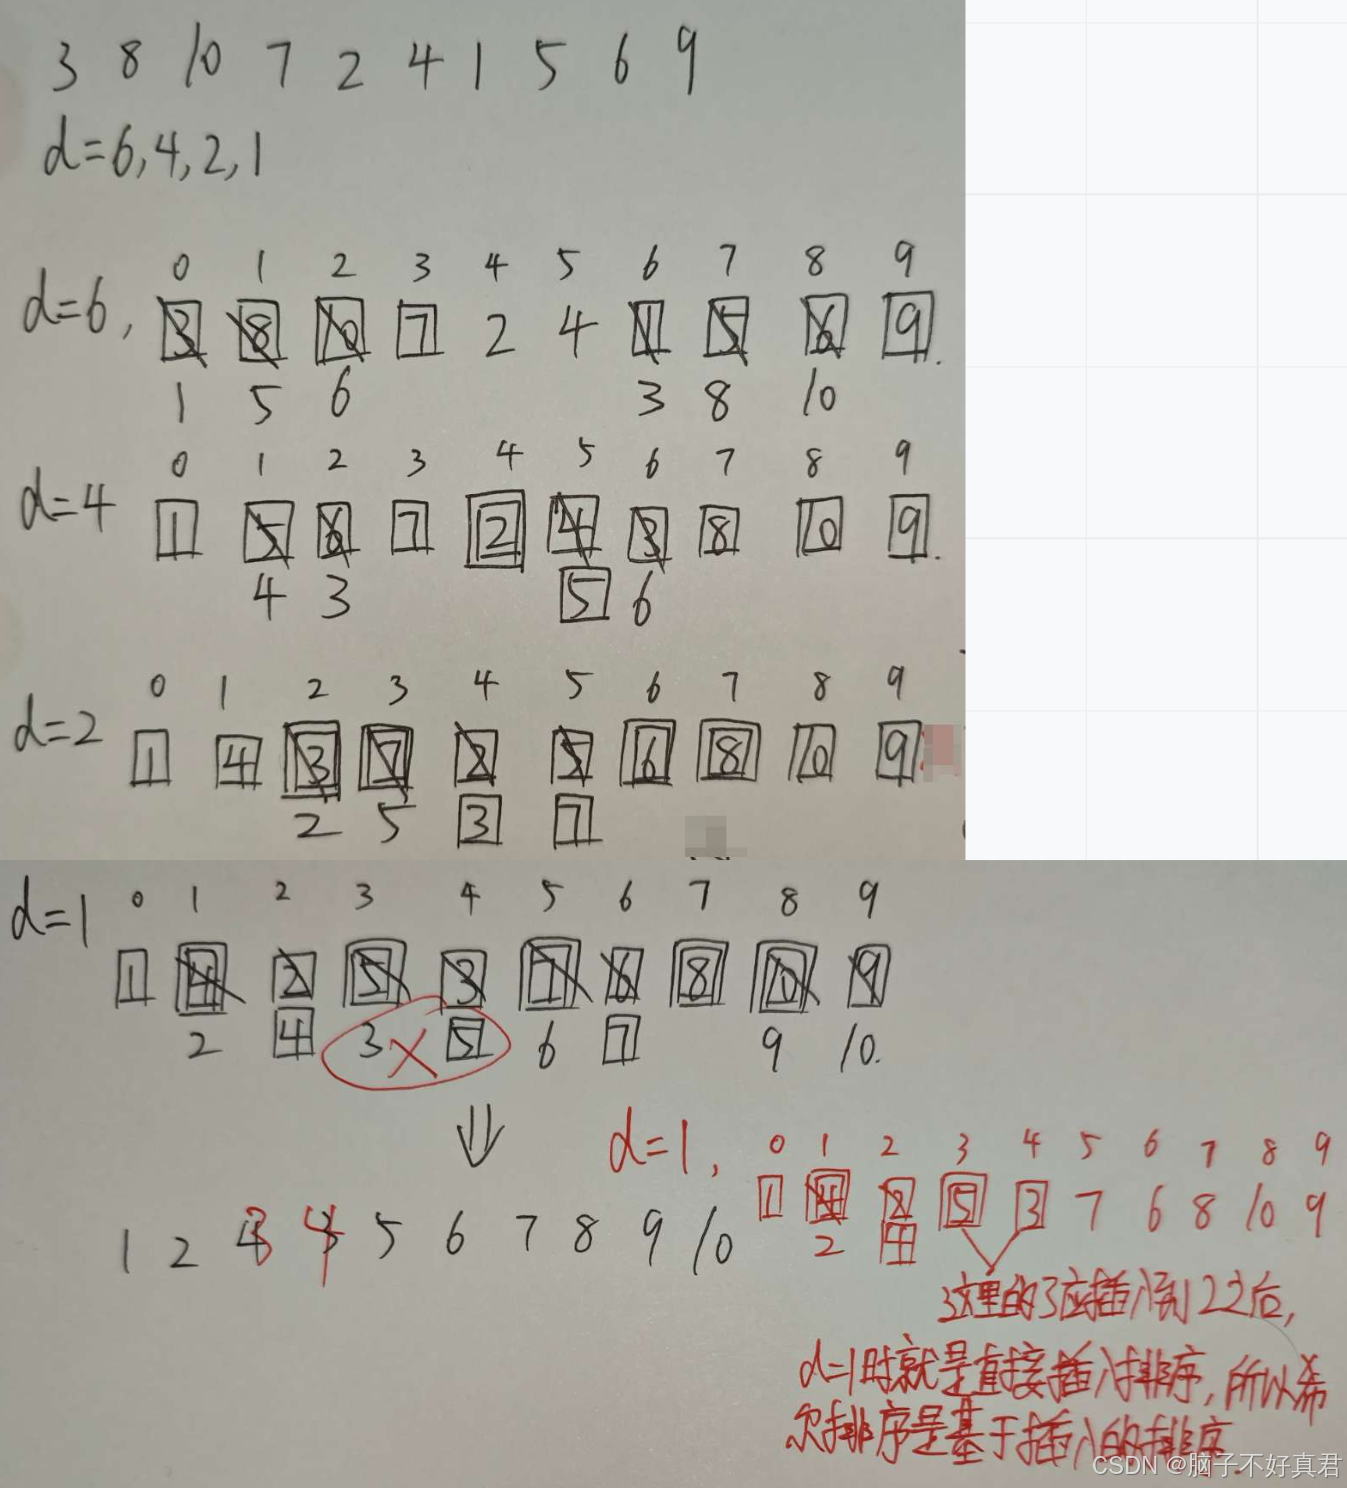 3 8 10 7 2 4 1 5 6 9
d=6,4,2,1
0 1 2 3 4 5 6 7 8 9
d=6, 3 8 10 7 2 4 1 5 6 9.
1 5 6 3 8 10
0 1 2 3 4 5 6 7 8 9
d=4 1 5 6 7 2 4 3 8 10 9.
4 3 5 6
0 1 2 3 4 5 6 7 8 9
d=2 1 4 3 7 2 5 6 8 10 9
2 5 3 7
d=1 0 1 2 3 4 5 6 7 8 9
1 4 2 5 3 7 6 8 10 9
2 4 3 5 6 7 9 10.
d=1, 0 1 2 3 4 5 6 7 8 9
1 4 2 5 3 7 6 8 10 9
2 4
1 2 3 4 5 6 7 8 9 10
这里的3应插到22后,
d=1时就是直接插入排序,所以希
尔排序是基于插入的排序.
CSDN @脑子不好真君